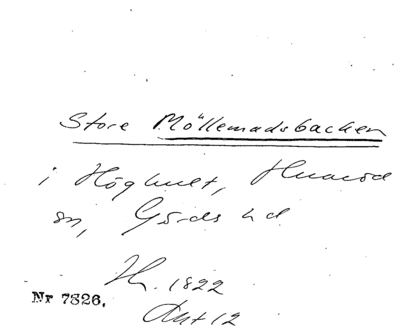 Store Möllemadsbacken
i Höghult, Huaröd
sn, Gärds hd
1822
Akt 12
Nr 7326.